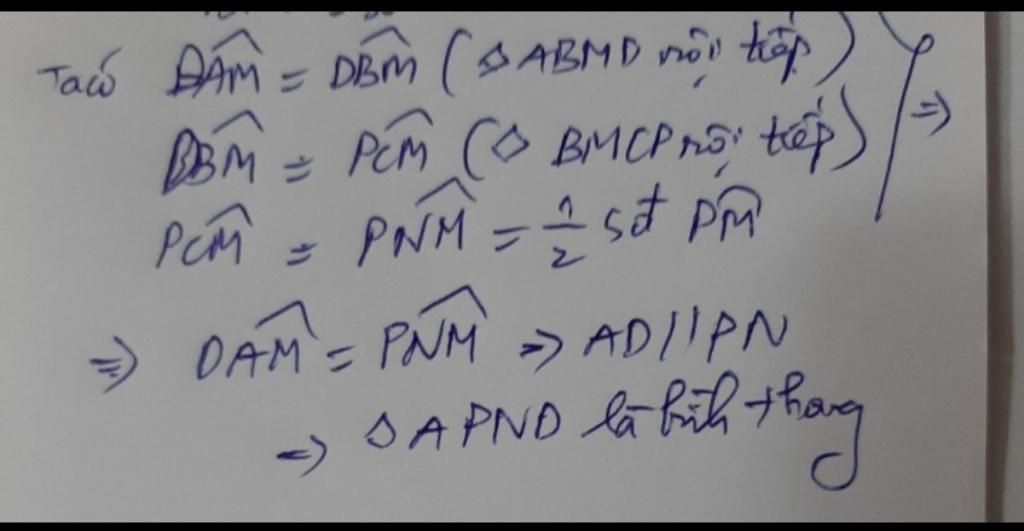 Ta có DAM = DBM (◇ ABMD nội tiếp)
DBM = PCM (◇ BMCP nội tiếp) =>
PCM = PNM = 1/2 sđ PM
=> DAM = PNM => AD // PN
=> ◇ APND là hình thang